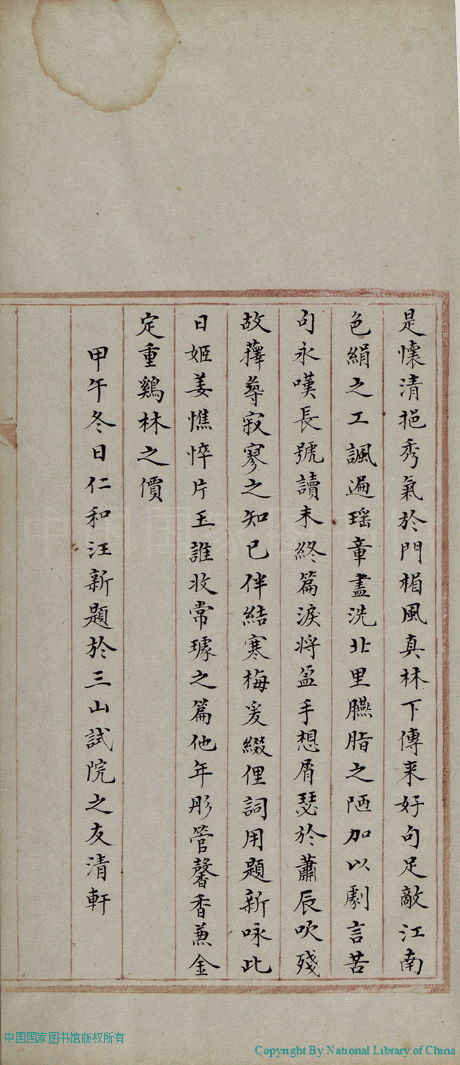 是懷清挹秀氣於門楣風真林下傳来好句足敵江南
色絹之工諷遍瑶章盡洗北里臙脂之陋加以劇言苦
句永嘆長號讀未終篇淚将盈手想屑瑟於蕭辰吹殘
故蘀蓦寂寥之知已伴結寒梅爰綴俚詞用題新咏此
日姬姜憔悴片玉誰收常璩之篇他年彤管馨香蒹金
定重鷄林之價
甲午冬日仁和汪新題於三山試院之友清軒
中国国家图书馆版权所有
Copyright By National Library of China